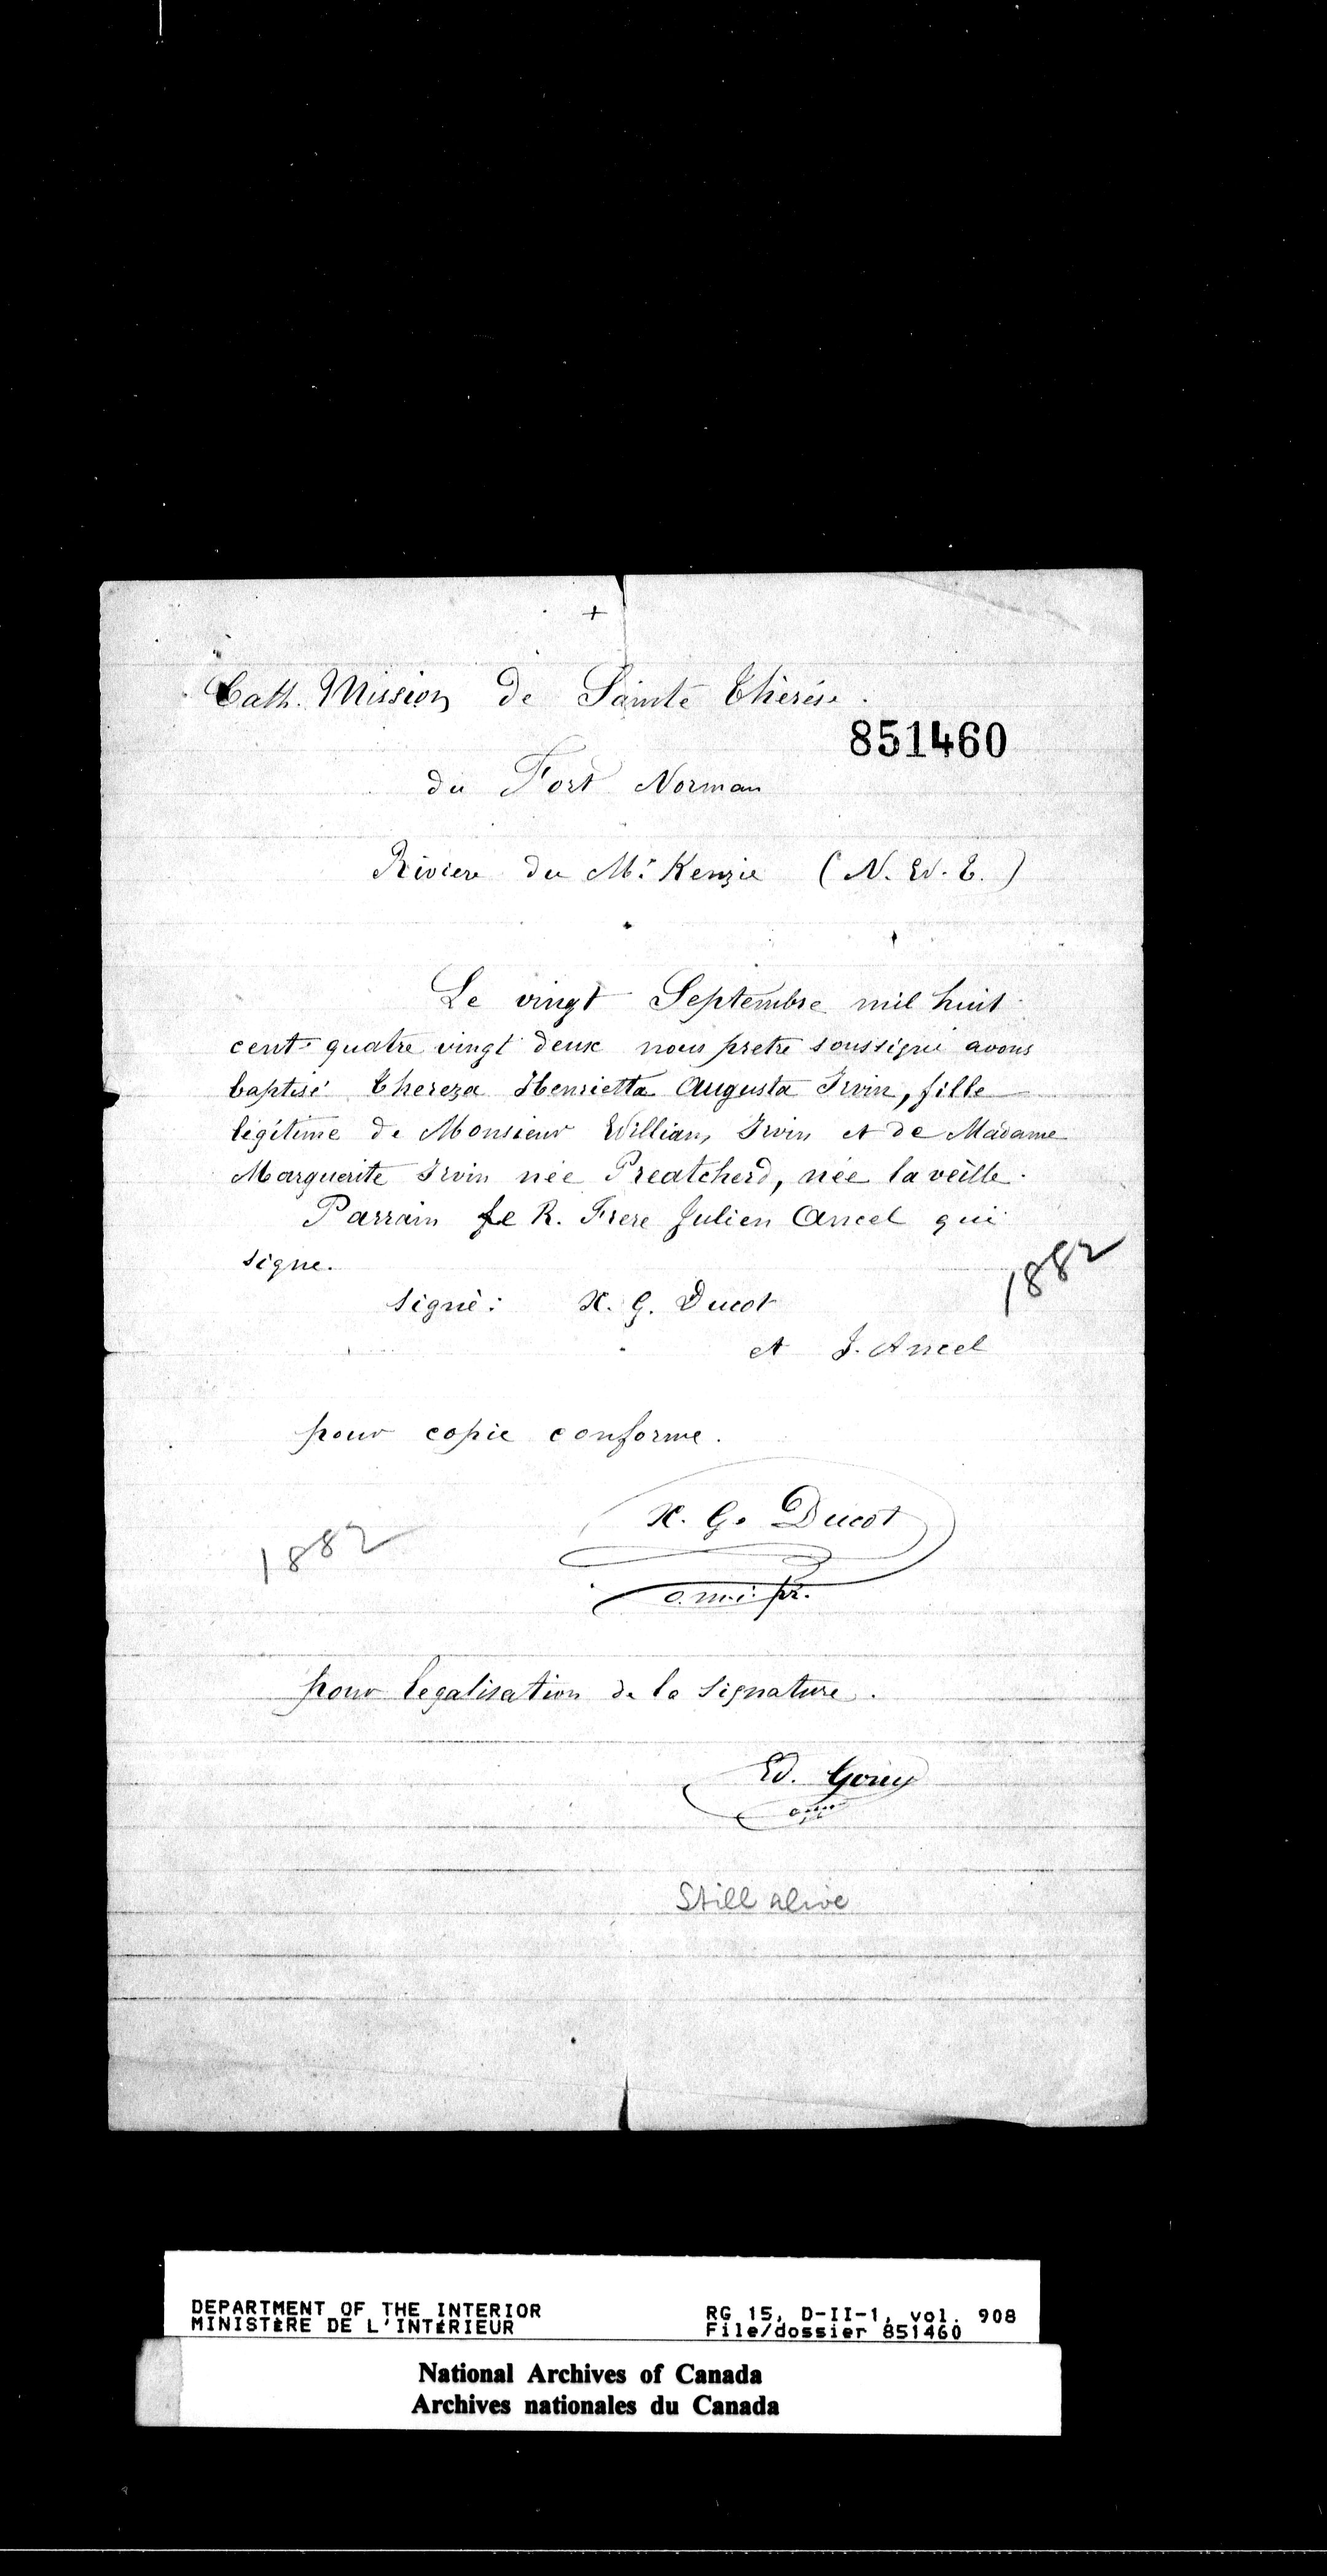 +
Cath. Mission de Sainte Thérèse.
851460
du Fort Norman
Riviere du Mc Kenzie (N. W. T.)
Le vingt Septembre mil huit
cent quatre vingt deux nous pretre soussigné avons
baptisé Thereza Henrietta Augusta Irvin, fille
légitime de Monsieur William Irvin et de Madame
Marguerite Irvin née Preatcherd, née la veille.
Parrain le R. Frere Julien Ancel qui
signe.
1882
signé: X. G. Ducot
et J. Ancel
pour copie conforme.
X. G. Ducot
1882
o.m.i. pr.
pour legalisation de la signature.
Ed. Gouy
Still alive
DEPARTMENT OF THE INTERIOR
MINISTÈRE DE L'INTÉRIEUR
RG 15, D-II-1, vol. 908
File/dossier 851460
National Archives of Canada
Archives nationales du Canada